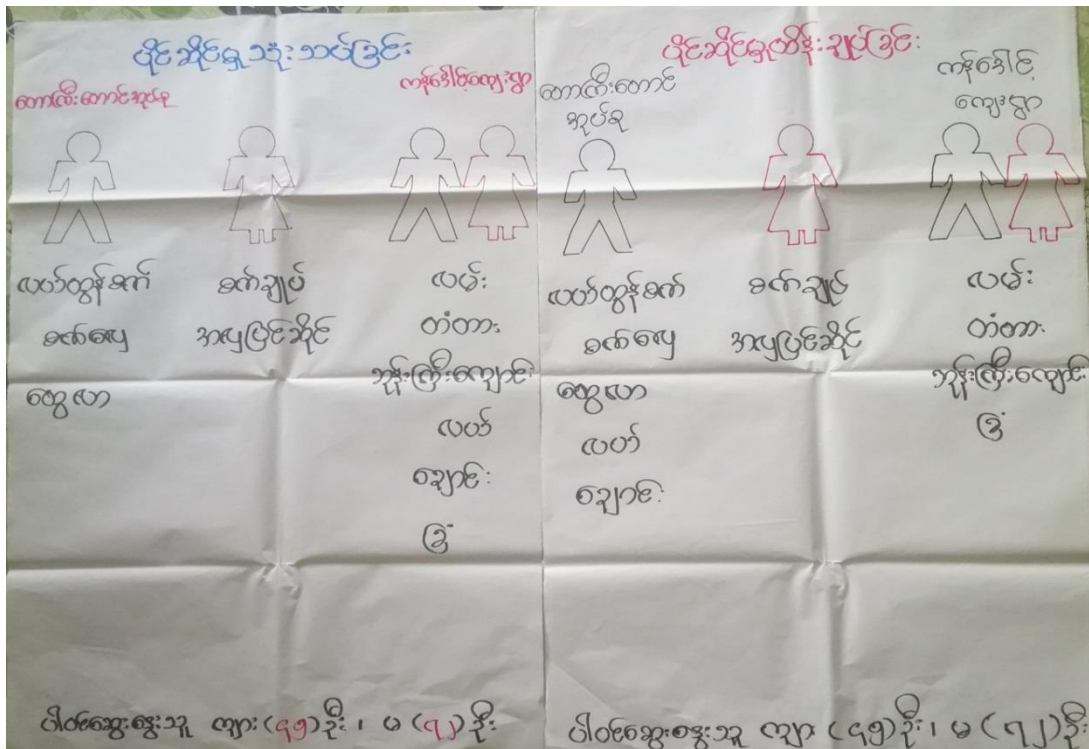 ပိုင်ဆိုင်မှုသုံးသပ်ခြင်း
တောကြီးတောင်အုပ်စု
ကန်ခေါင့်ကျေးရွာ
လယ်ထွန်စက်
စက်ချုပ်
လမ်း
စက်လှေ
အလှပြင်ဆိုင်
တံတား
ထွေလာ
ဘုန်းကြီးကျောင်း
လယ်
ချောင်း
ခြံ
ပါဝင်ဆွေးနွေးသူ ကျား (၄၅) ဦး ၊ မ (၇၂) ဦး
ပိုင်ဆိုင်မှုထိန်းချုပ်ခြင်း
တောကြီးတောင်
အုပ်စု
ကန်ခေါင့်
ကျေးရွာ
လယ်ထွန်စက်
စက်ချုပ်
လမ်း
စက်လှေ
အလှပြင်ဆိုင်
တံတား
ထွေလာ
ဘုန်းကြီးကျောင်း
လယ်
ခြံ
ချောင်း
ပါဝင်ဆွေးနွေးသူ ကျား (၄၅) ဦး ၊ မ (၇၂) ဦး